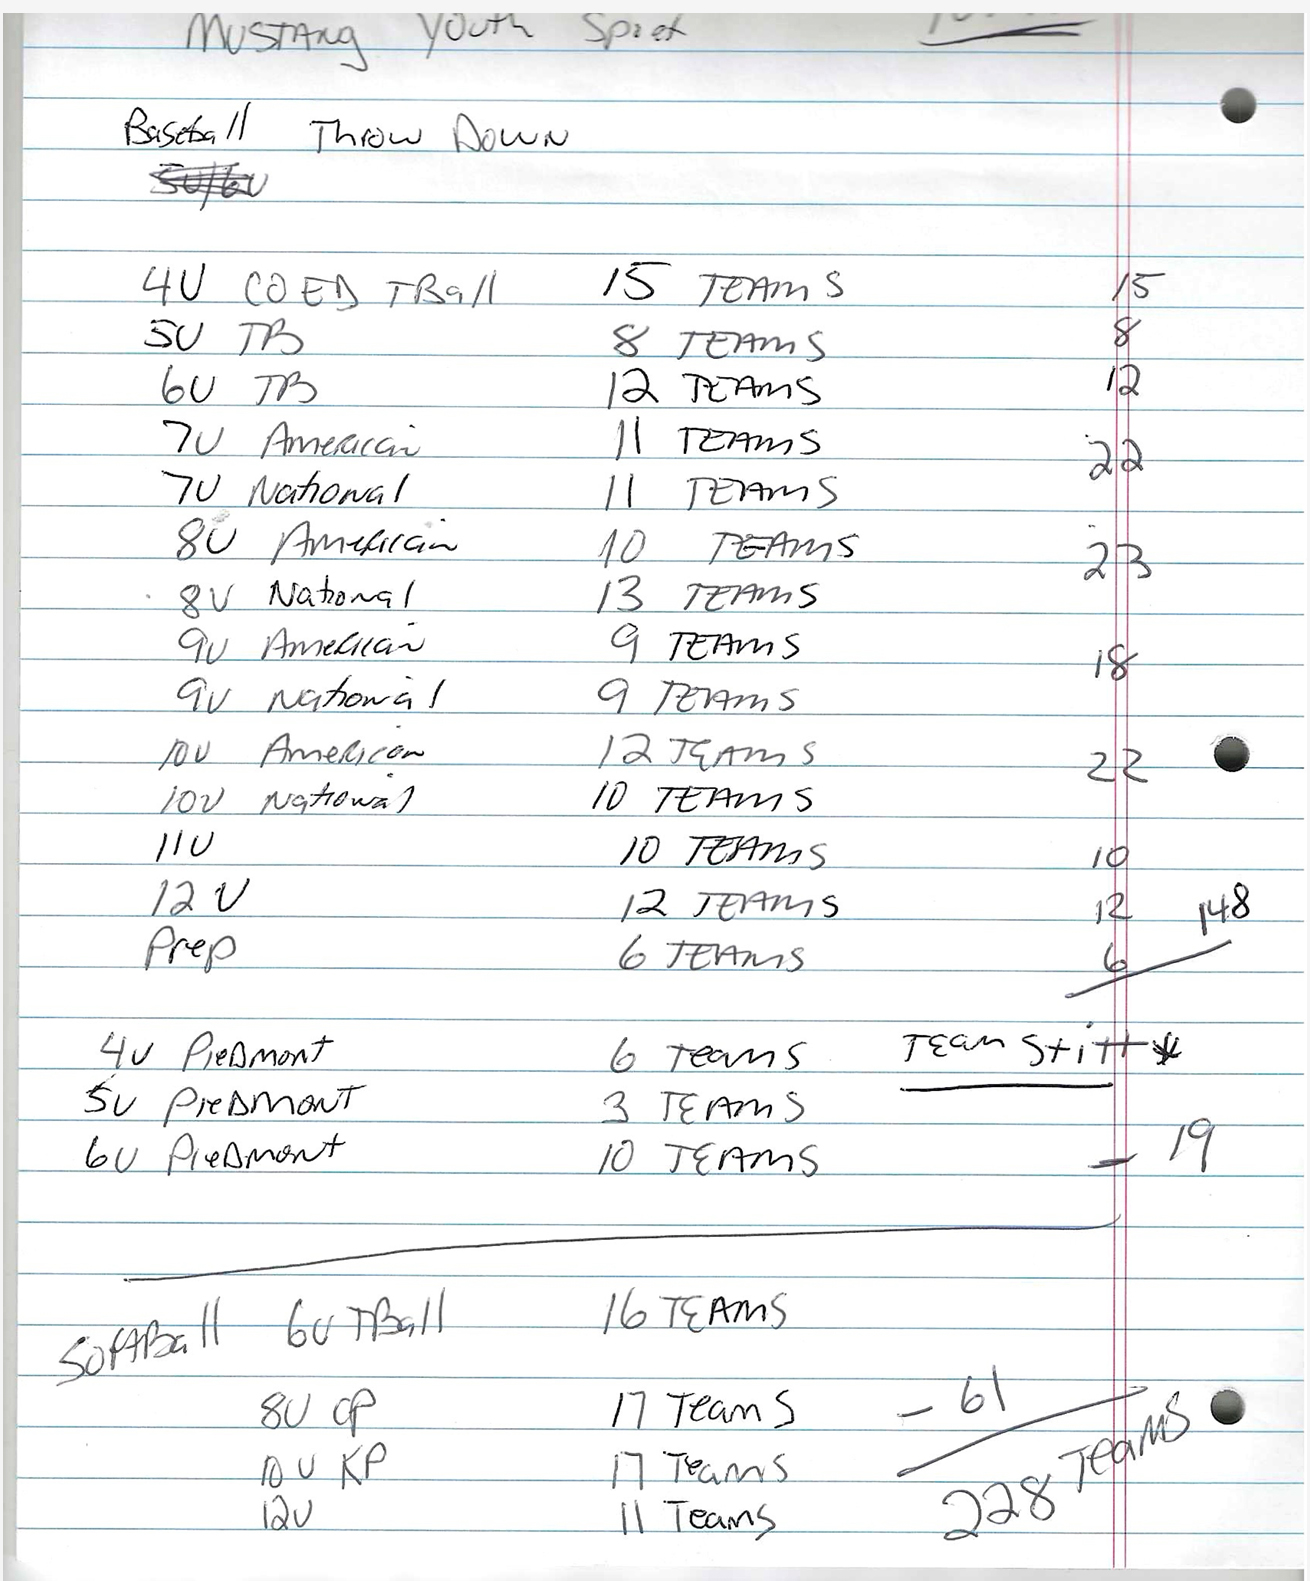 Mustang Youth Spirt
Baseball Throw Down
5U/6U
4U COED TBall 15 TEAMS 15
5U TB 8 TEAMS 8
6U TB 12 TEAMS 12
7U American 11 TEAMS 22
7U National 11 TEAMS
8U American 10 TEAMS 23
8U National 13 TEAMS
9U American 9 TEAMS 18
9U National 9 TEAMS
10U American 12 TEAMS 22
10U National 10 TEAMS
11U 10 TEAMS 10
12U 12 TEAMS 12 148
Prep 6 TEAMS 6
4U PieDmont 6 Teams TEam Stitt*
5U PieDmont 3 TEAMS
6U PieDmont 10 TEAMS – 19
SoftBall 6U TBall 16 TEAMS
8U CP 17 Teams – 61
10U KP 17 Teams 228 TeamS
12U 11 Teams